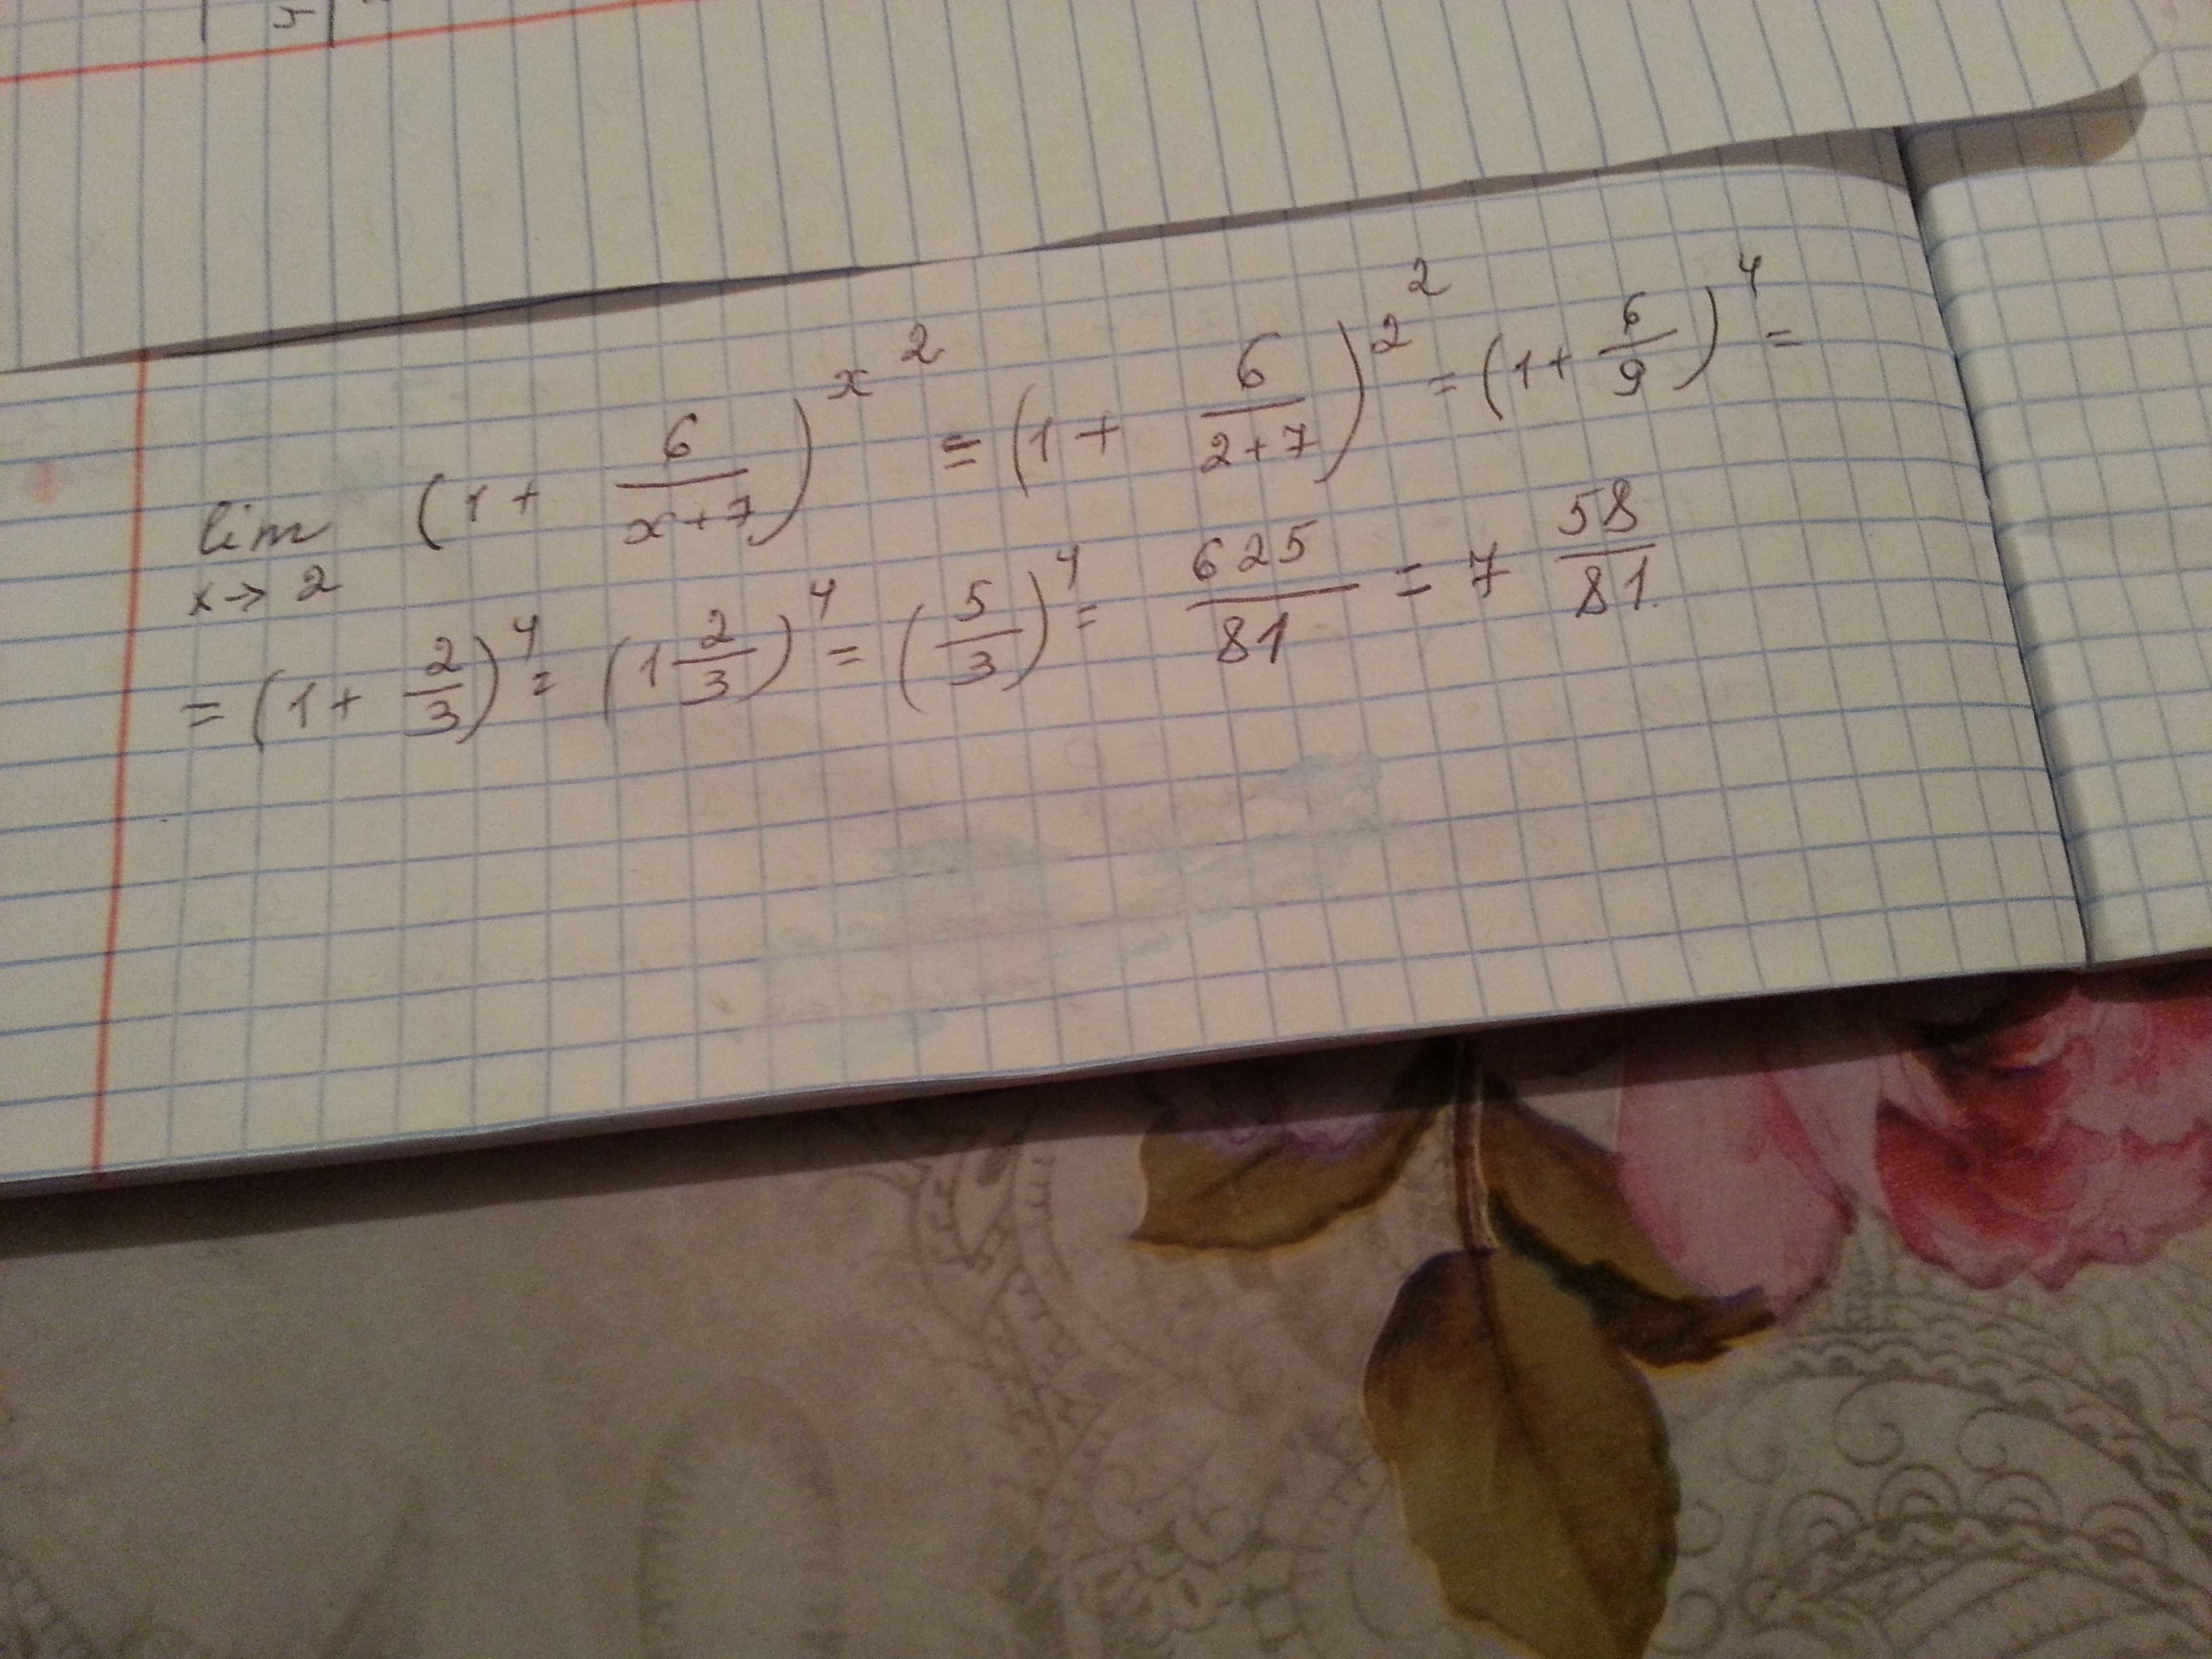 lim x→2 (1 + 6/(x+7))^x^2 = (1 + 6/(2+7))^2^2 = (1 + 6/9)^4 =
= (1 + 2/3)^4 = (1 2/3)^4 = (5/3)^4 = 625/81 = 7 58/81